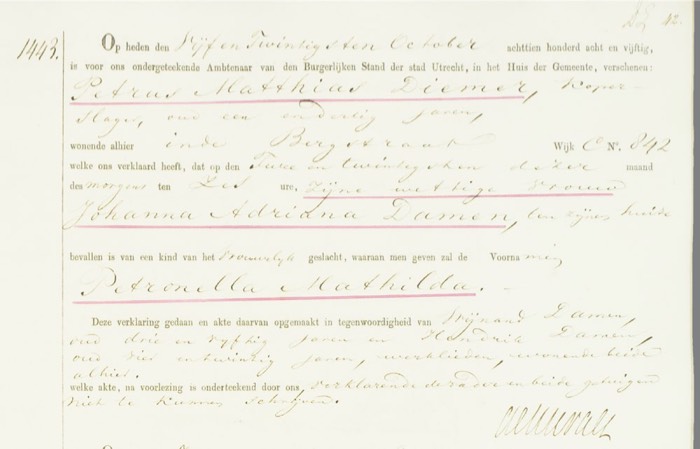 42.
1443.
Op heden den Vijf en Twintigsten October achttien honderd acht en vijftig,
is voor ons ondergeteekende Ambtenaar van den Burgerlijken Stand der stad Utrecht, in het Huis der Gemeente, verschenen:
Petrus Matthias Diemer, Koper-
slager, oud een en dertig jaren,
wonende alhier in de Bergstraat Wijk C No. 842
welke ons verklaard heeft, dat op den Twee en twintigsten dezer maand
des morgens ten Zes ure, zijne wettige vrouw
Johanna Adriana Damen, ten zijnen huize
bevallen is van een kind van het Vrouwelijk geslacht, waaraan men geven zal de Voornamen
Petronella Mathilda.
Deze verklaring gedaan en akte daarvan opgemaakt in tegenwoordigheid van Wijnand Damen,
oud drie en vijftig jaren en Hendrik Damen,
oud vier en twintig jaren, werklieden, wonende beide
alhier.
welke akte, na voorlezing is onderteekend door ons, verklarende de vader en beide getuigen
niet te kunnen schrijven.